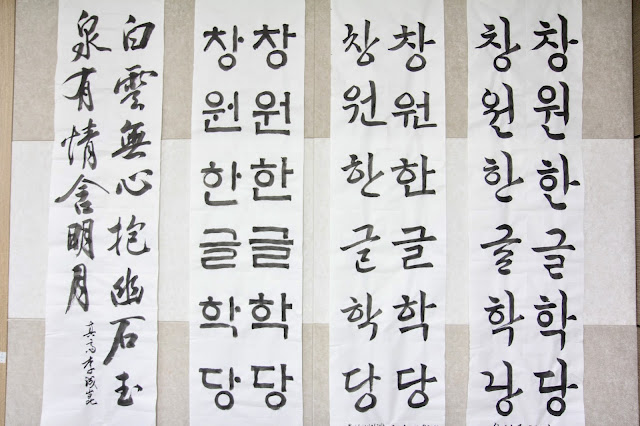 창원한글학당
창원한글학당
창원한글학당
창원한글학당
창원한글학당
창원한글학당
白雲無心抱幽石玉
泉有情含明月